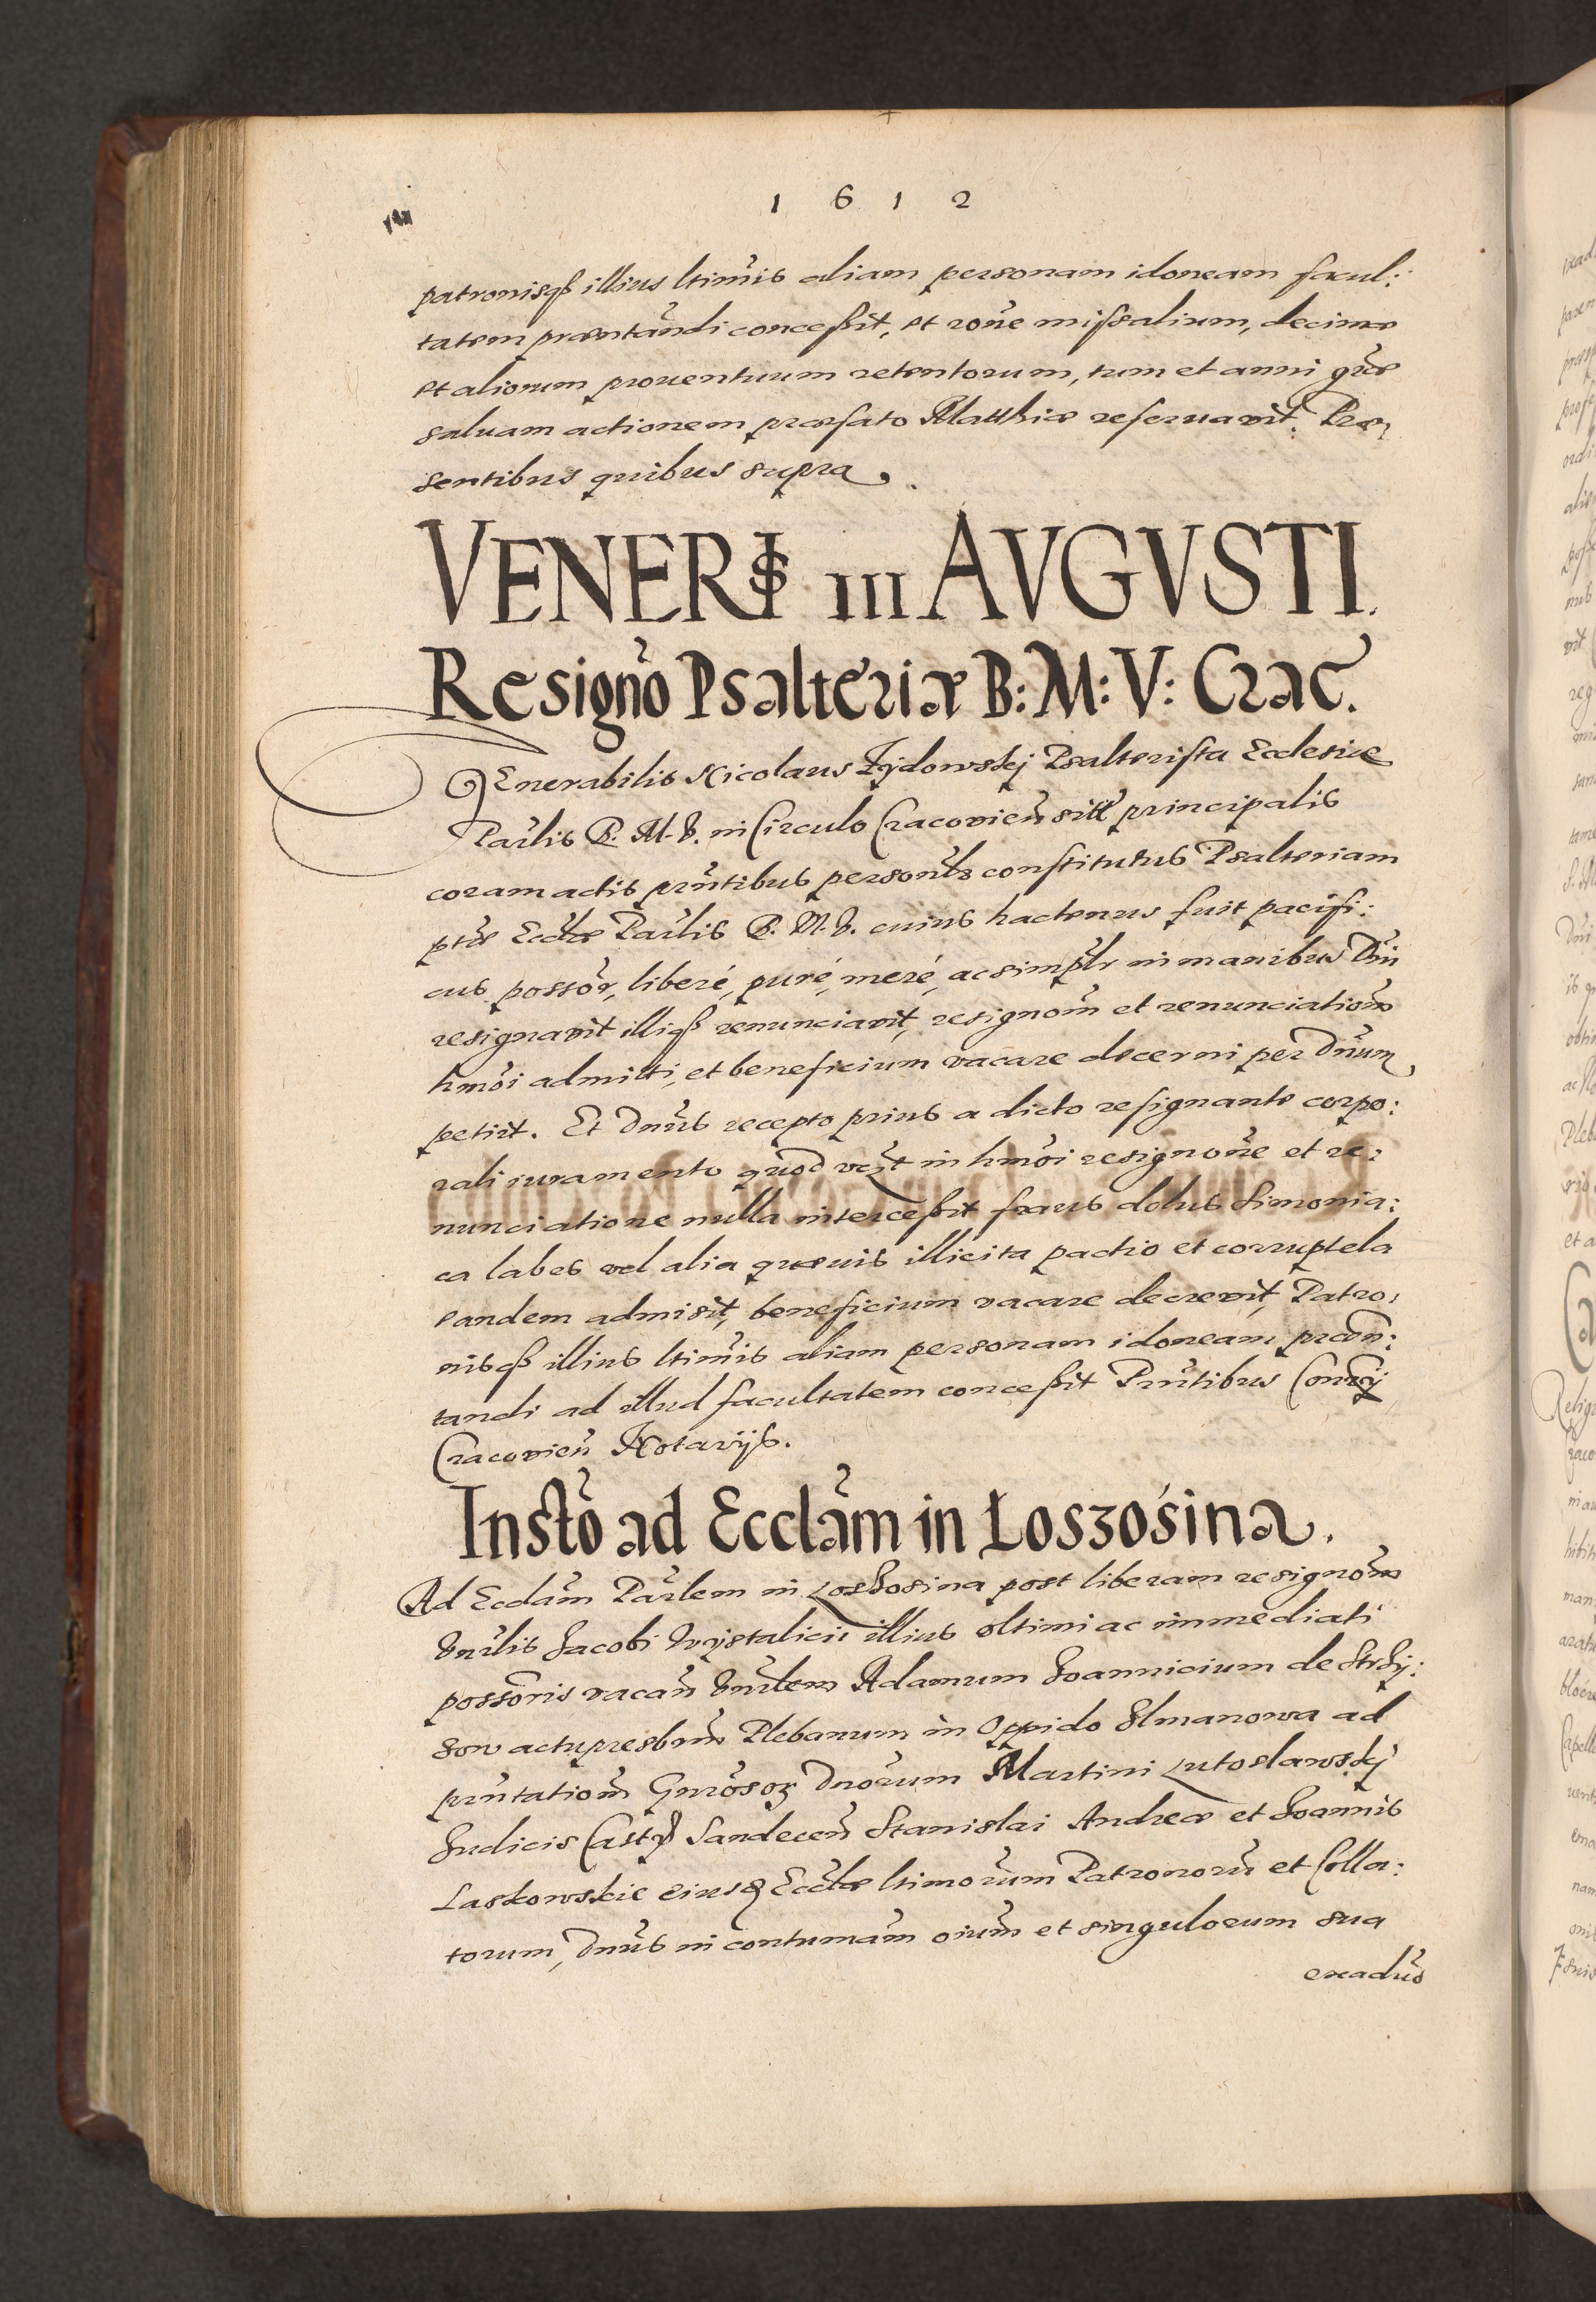 1612
patronisqß illius ltimis aliam personam idoneam facul:
tatem praentandi concessit, et rone missalium, decimae
et aliorum prouentuum retentorum, tum et anni grae
saluam actionem praefato Matthiae reseruavit. Prae,
sentibus quibus supra.
VENERIS III AVGVSTI.
Resigno Psalteriae B: M: V: Crac.
VEnerabilis Nicolaus Zydowskj Psalterista Ecclesiae
Parlis B. M. V. in Circulo Cracovien sitae principalis
coram actis pntibus personlr constitutus Psalteriam
ptae Ecclae Parlis B. M. V. cuius hactenus fuit pacifi:
cus possor, liberé, puré, meré, ac simplr in manibus Dni
resignavit illiqß renunciavit, resignom et renunciationem
hmoi admitti, et beneficium vacare decerni per Dnum
petiit. Et Dnus recepto prius a dicto resignante corpo:
rali iuramento quod in hmoi resignone et re:
nunciatione nulla intercessit fraus dolus Simonia:
ca labes vel alia quaeuis illicita pactio et corruptela
eandem admisit, beneficium vacare decrevit, Patro,
nisqß illius ltimis aliam personam idoneam praen:
tandi ad illud facultatem concessit Pntibus Conrij
Cracovien Notarijs.
Insto ad Ecclam in Loszosina.
Ad Ecclam Parlem in Loszosina post liberam resignom
Vnrlis Jacobi Crystalicii illius vltimi ac immediati
possoris vacan Vnrlem Adamum Joannicium de Strzy:
zow actu presbrum Plebanum in Oppido Ilmanowa ad
pntationem Gnrosoꝝ Dnorum Martini Lutoslawskj
Judicis Sandecen Stanislai Andreae et Joannis
Laskowskie eiusd Ecclae ltimorum Patronoru et Colla:
torum, Dnus in contumam oium et singulorum sua